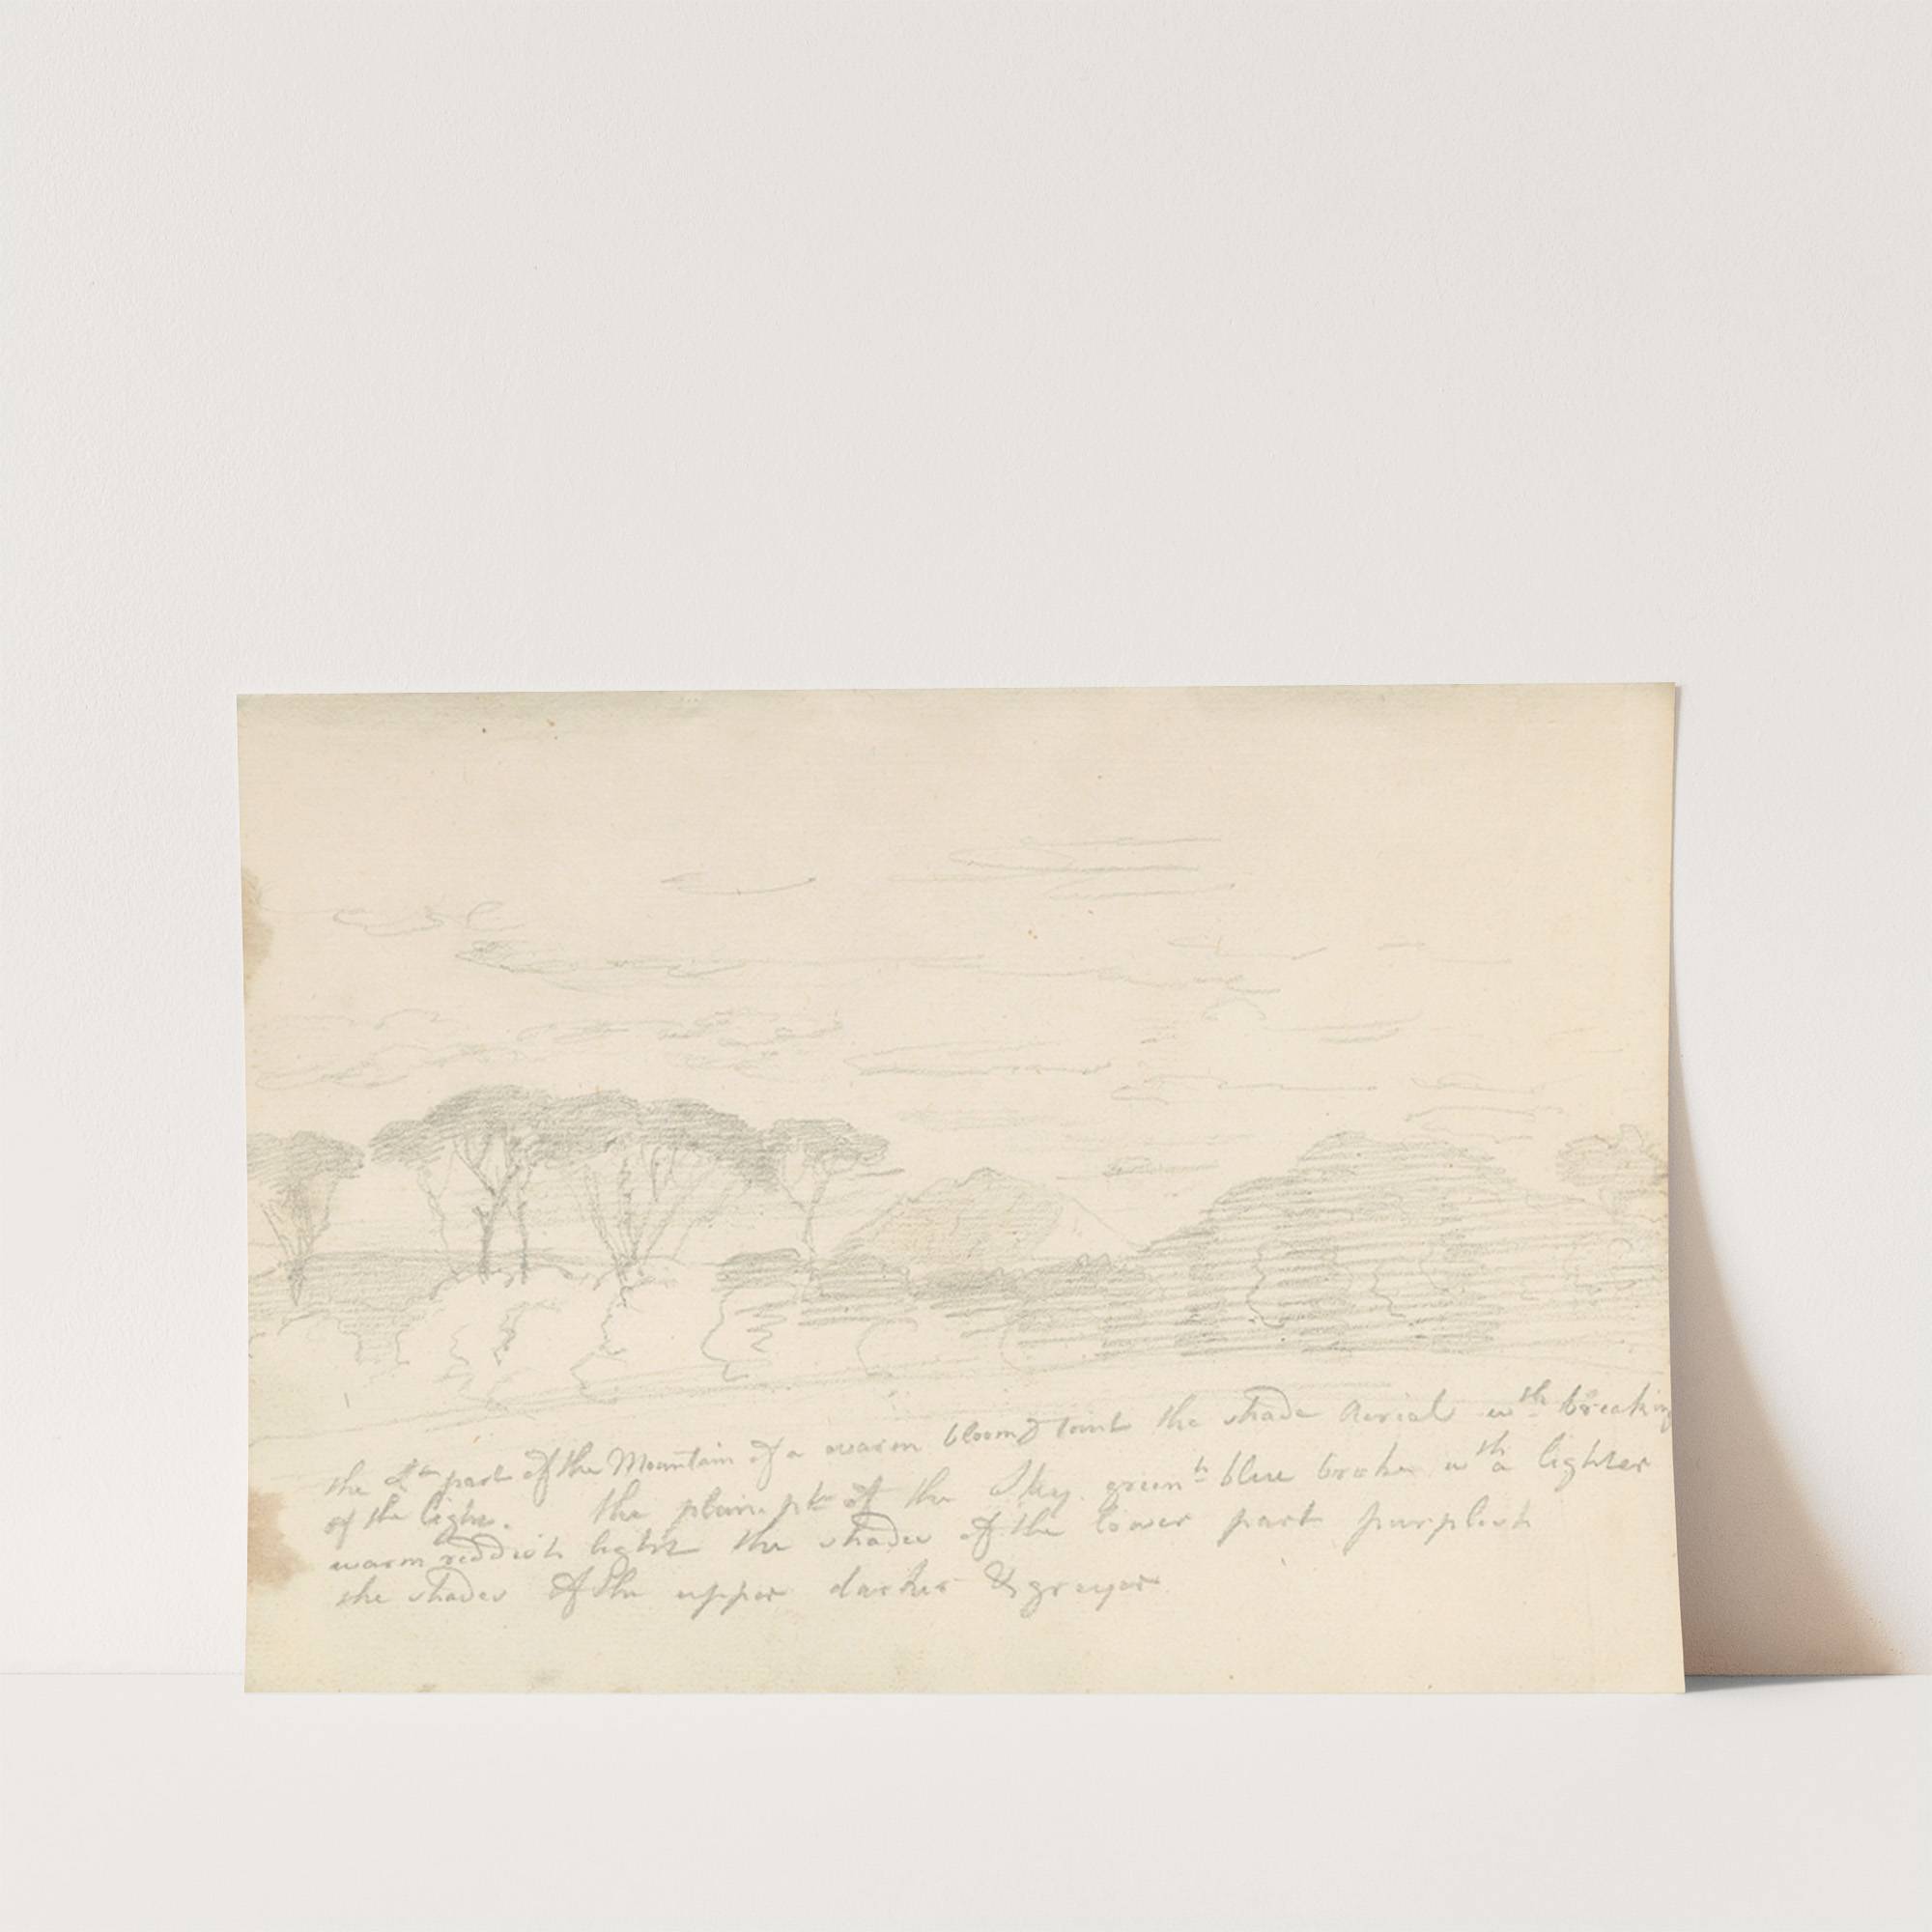 the Lt part of the Mountain of a warm bloomy tint the shade Aerial wth breaking
of the light. the plain pt of the Sky greenh blue broke wth a lighter
warm reddish light the shades of the lower part purplish
the shades of the upper darker & greyer